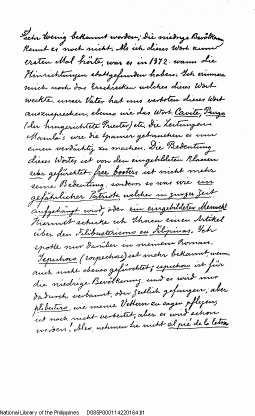 sehr wenig bekannt worden; Die niedrige Bevölkerung
kennt es noch nicht. Als ich dieses Wort zum
ersten Mal hörte, war es in 1872. wann die
Hinrichtungen stattgefunden haben. Ich erinnere
mich noch das Erschrecken welches dieses Wort
weckte. unser Vater hat uns verboten dieses Wort
auszusprechen, ebenso wie das Wort Cavite, Burgos
(der hingerichtete Priester) etc. Die Zeitungen
Manila's wie die Spanier gebrauchen es um
einen verdächtig zu machen. Die Bedeutung
dieses Wortes ist von den eingebildeten Klassen
gefürchtet. free booters ist nicht mehr
seine Bedeutung, sondern es was wie ein
gefährlicher Patriot, welcher in junger Zeit
aufgehängt wird, oder ein eingebildeter Mensch!
Hiermit schicke ich Ihnen einen Artikel
über den Filibusterismo en Filipinas. Ich
spotte mir darüber in meinem Roman.
Sospechoso (suspechoso) ist mehr bekannt, wenn
auch nicht ebenso gefürchtet; sospechoso ist für
die niedrige Bevölkerung und es wird nur
dadurch verbannt, oder zeitlich gefangen, aber
plibestiro, wie meine Vettern zu sagen pflegten,
ist noch nicht verbreitet, aber es wird schon
werden! Also nehmen Sie nicht al pié de la letra
National Library of the Philippines